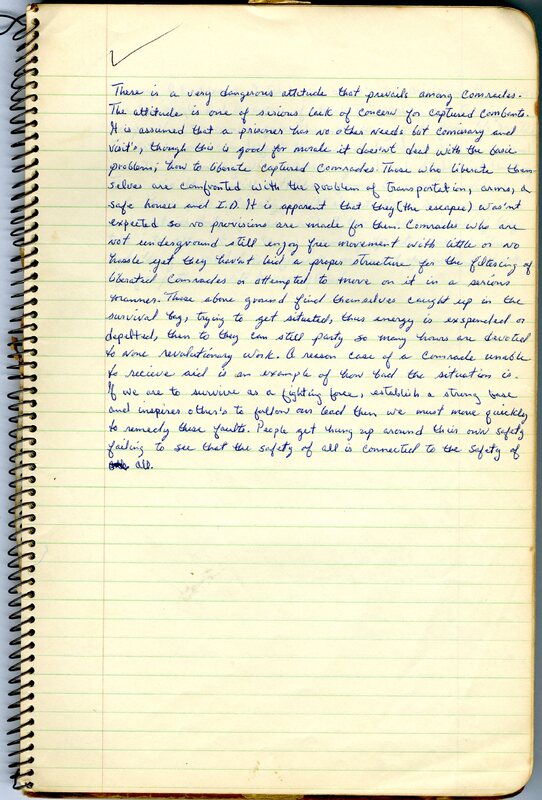 There is a very dangerous attitude that prevails among Comrades.
The attitude is one of serious lack of concern for captured combants.
It is assumed that a prisoner has no other needs but comissary and
visit's, though this is good for morale it doesn't deal with the basic
problem; how to liberate captured Comrades. Those who liberate them-
selves are confronted with the problem of transportation, arms, a
safe houses and I.D. It is apparent that they (the escapee) wasn't
expected so no provisions are made for them. Comrades who are
not underground still enjoy free movement with little or no
hassle yet they haven't laid a proper structure for the filtering of
liberated Comrades or attempted to move on it in a serious
manner. Those above ground find themselves caught up in the
survival bag, trying to get situated, thus energy is exspended or
depilted, then to they can still party so many hours are devoted
to none revolutionary work. A reason case of a Comrade unable
to recieve aid is an example of how bad the situation is.
If we are to survive as a fighting force, establish a strong base
and inspires other's to follow our lead then we must move quickly
to remedy these faults. People get hung up around their own safety
failing to see that the safety of all is connected to the safety of
all.